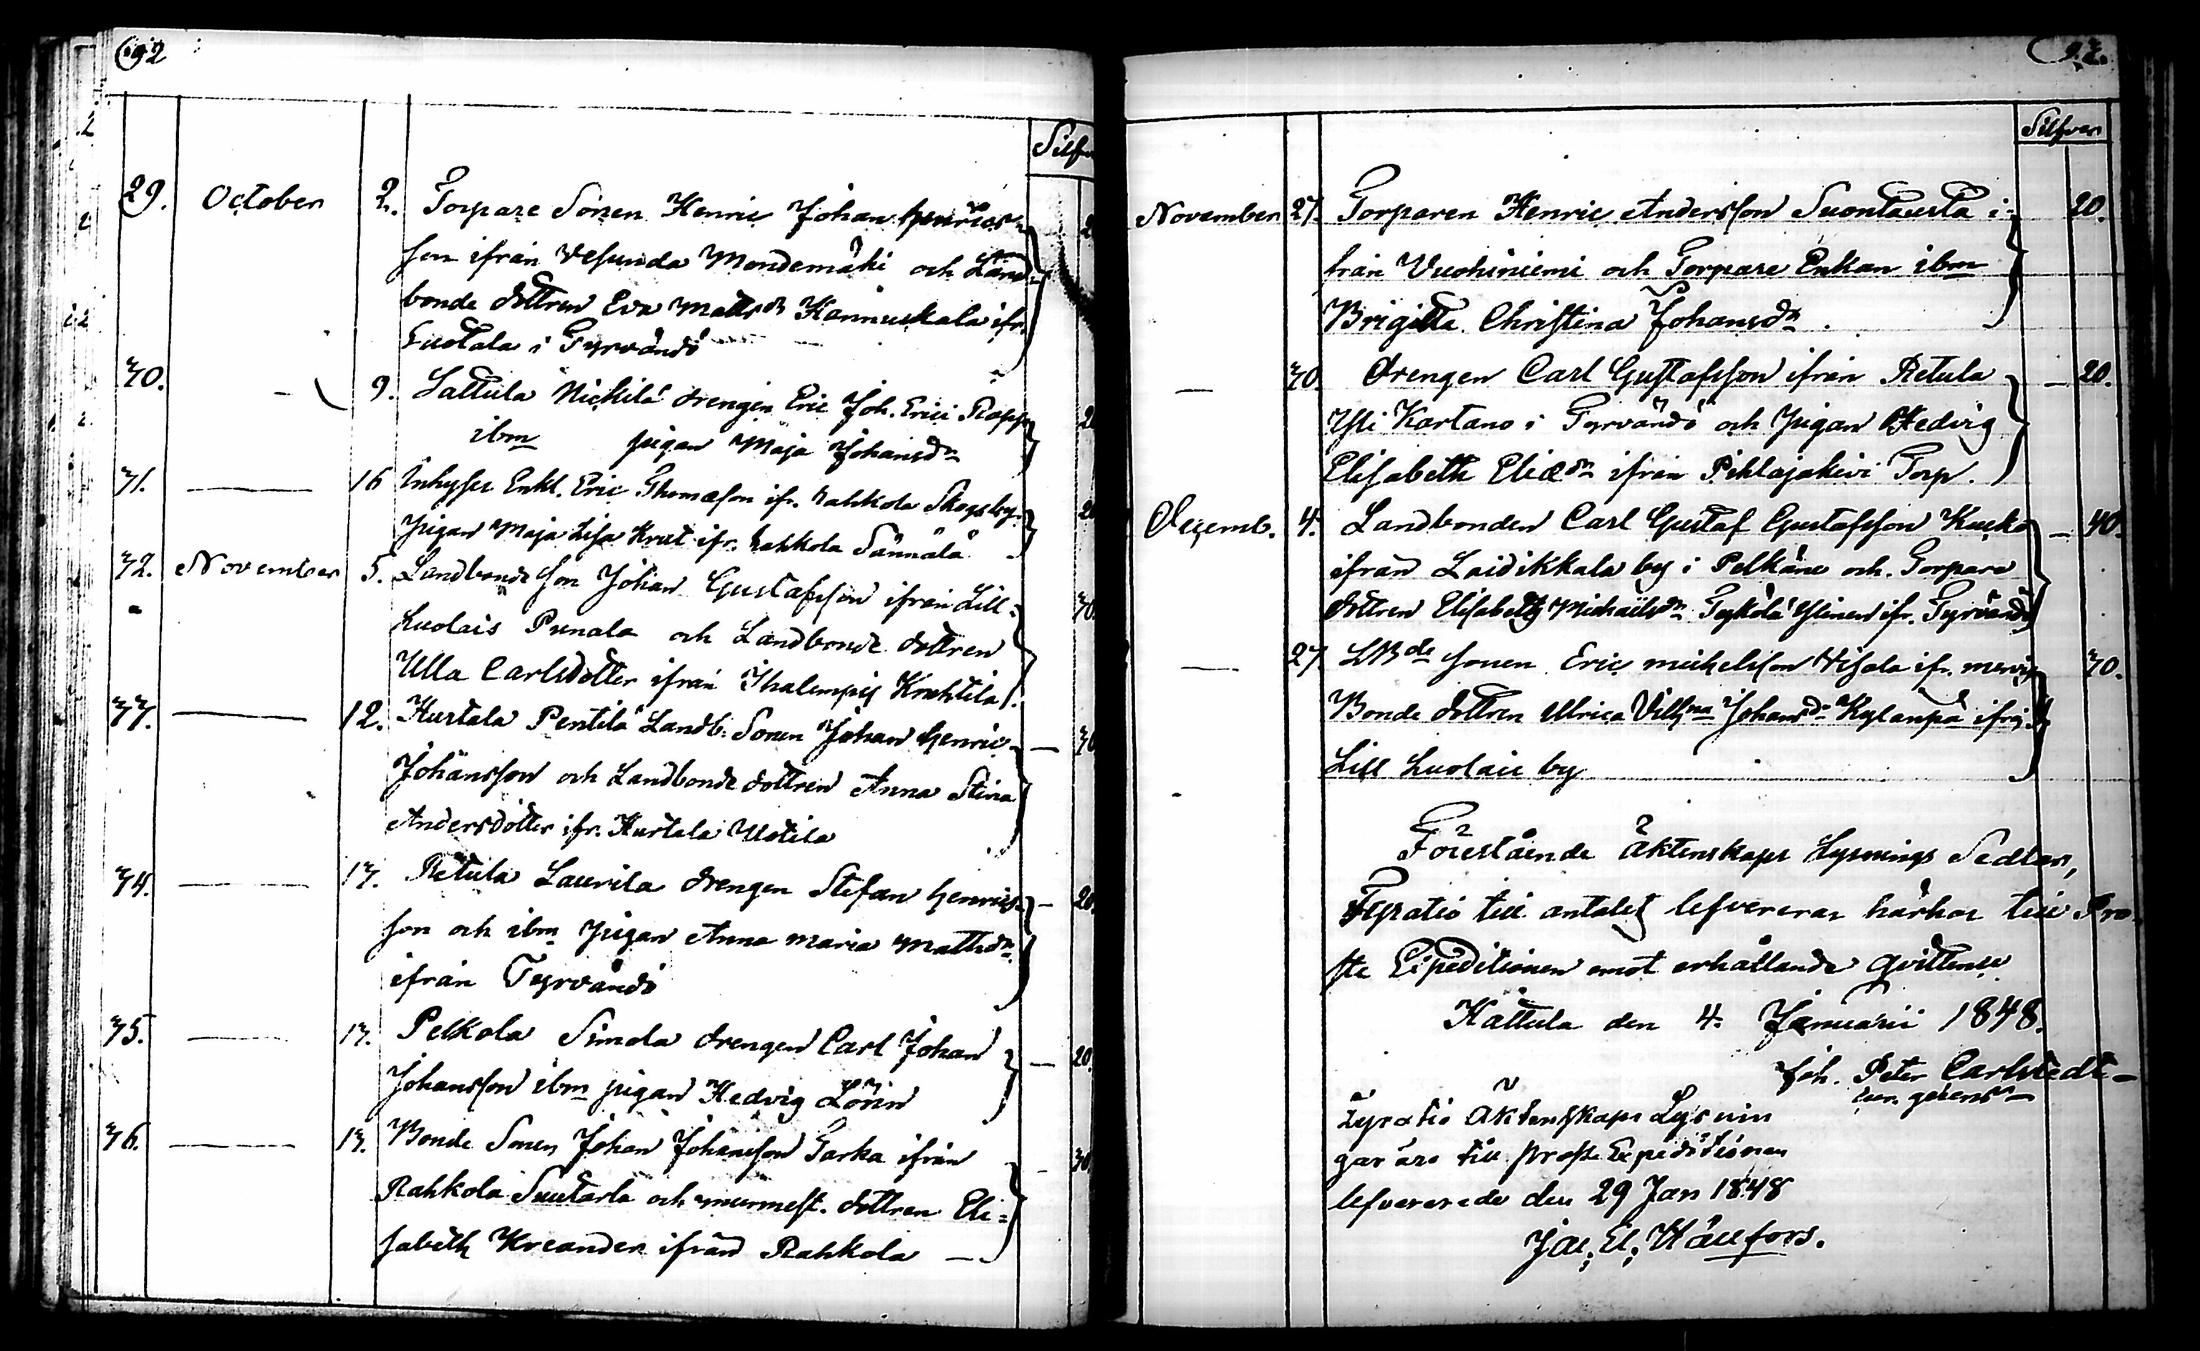 92
Silfv
29. October 2. Torpare Sonen Henric Johan Henrics-
son ifrån Vesunda Mondemäki och Land-
bonde dottren Eva Mattsdr Kannuskala ifr.
Suotala i Tyrvändö
30. — 9. Lattula Nickilä drengen Eric Joh. Erici Rapp
ibm pigan Maja Johansdr
31. — 16 Inhyses Enkl. Eric Thomæson ifr. Rahkola Skogsby.
Pigan Maja Lisa Krut ifr. Rahkola Sännälä
32. November 5. Landbonde son Johan Gustafsson ifrån Lill-
Luolais Punala och Landbonde dottren 30.
Ulla Carlsdotter ifrån Ihalempis Krahtila
33. — 12. Kurtala Pentilä Landb. Sonen Johan Henric — 30
Johansson och Landbonde dottren Anna Stina
Andersdotter ifr. Kurtala Uotila
34. — 13. Retula Laurila drengen Stefan Henrics- — 20.
son och ibm Pigan Anna Maria Mattsdr
ifrån Tyrvändö
35. — 13. Pelkola Simola drengen Carl Johan — 20
Johansson ibm pigan Hedvig Lörin
36. — 13. Bonde Sonen Johan Johansson Sarka ifrån — 30.
Rahkola Suutarla och murmest. dottren Eli=
sabeth Kreander ifrån Rahkola —
93.
Silfver
November 27. Torparen Henric Andersson Suontausta i- 20.
från Vuohiniemi och Torpare Enkan ibm
Brigitta Christina Johansdr.
— 30. Drengen Carl Gustafsson ifrån Retula — 20.
Yli Kartano i Tyrvändö och Pigan Hedvig
Elisabeth Eliædr ifrån Pihlajakivi Torp.
Decemb. 4. Landbonden Carl Gustaf Gustafsson Kucko — 40.
ifrån Laidikkala by i Pelkäne och Torpare
dottren Elisabeth Michaëlsdr Tykölä Ylinen ifr. Tyrvändö
— 27. LBde sonen Eric Michelsson Visala ifr. Mervis 30.
Bonde dottren Ulrica Villhma Johansdr Kylänpä ifrån
Lill Luolais by
Förestående Äktenskaps Lysnings Sedlar,
Fyratio till antalet lefvereras härhos till Pro
ste Expeditionen emot erhållande qvittense
Hattula den 4. Januarii 1848.
Joh. Peter Carlstedt
Fyratio Äktenskaps Lysnin
gar äro till Proste Expeditionen
lefvererade den 29 Jan 1848
Jac. El. Hällfors.